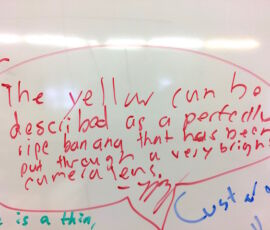 The yellow can be
described as a perfectly
ripe banana that has been
put through a very bright
camera lens.
e is a thin,